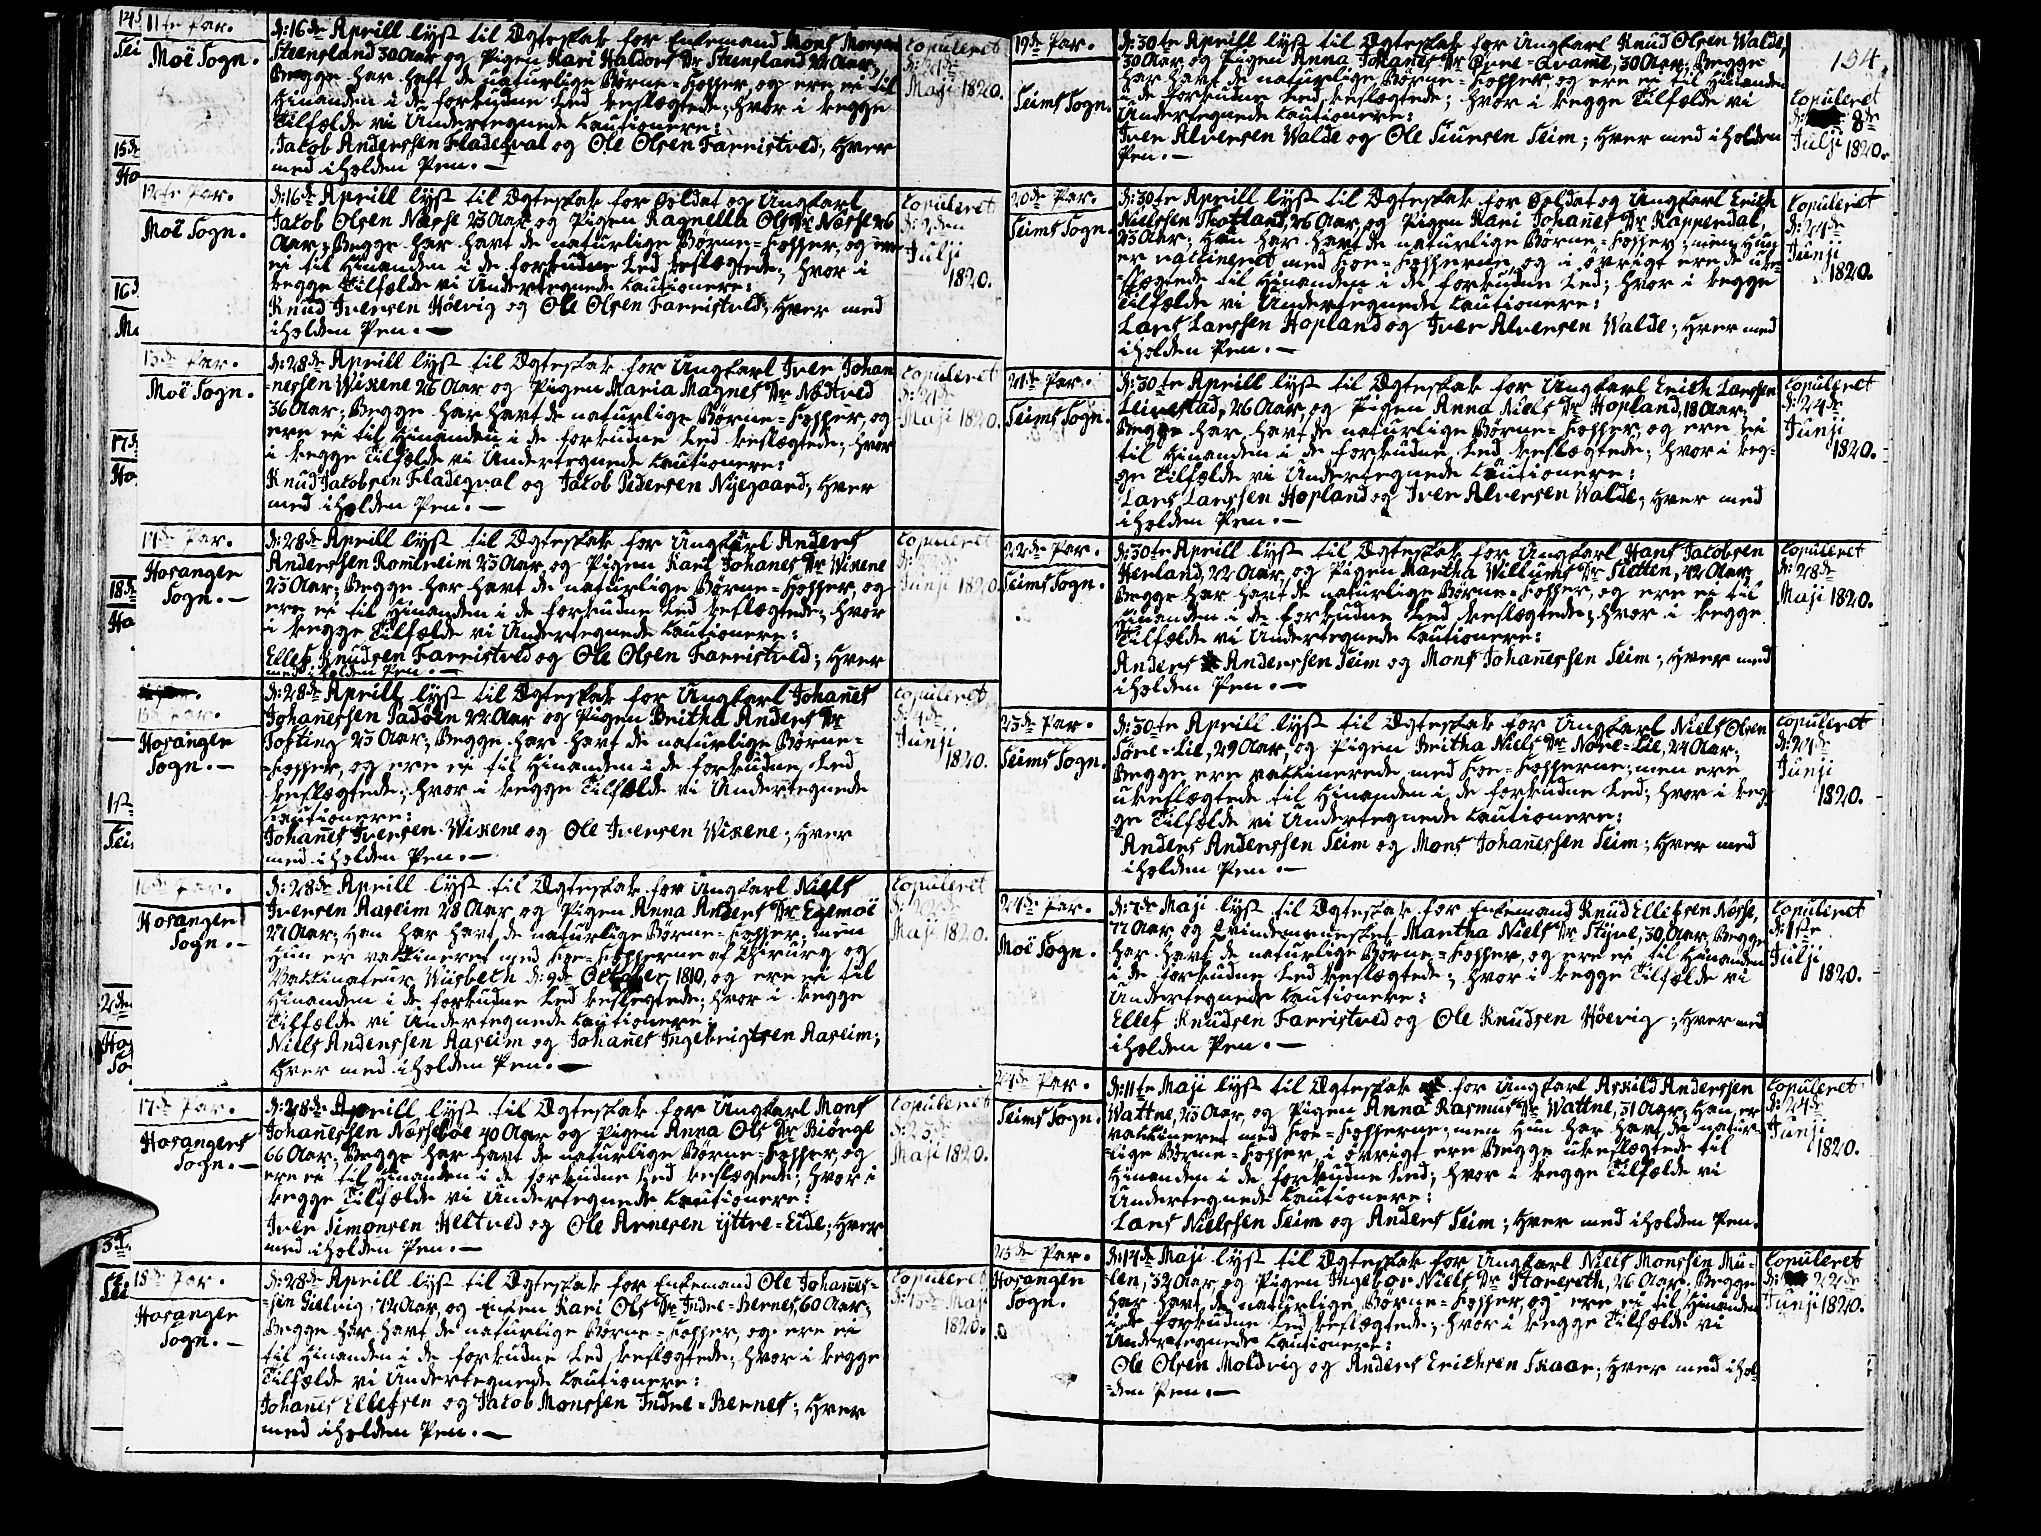 11te Par.
Moë Sogn.
d: 16de Aprill lyst til Ægteskab for Enkemand Mons Monsen
Steensland 30 Aar og Pigen Kari Haldors Dr Steensland 22 Aar,
Begge har haft de naturlige Børne-Kopper, og ere ei til
Hinanden i de forbudne Led beslægtede; hvor i begge
Tilfælde vi Undertegnede Cautionere:
Jacob Anderssen Fladeqval og Ole Olsen Farristved; Hver
med iholden Pen. —
Copuleret
d: 21de
Maji 1820.
12te Par.
Moë Sogn.
d: 16de Aprill lyst til Ægteskab for Soldat og Ungkarl
Jacob Olsen Næsse 23 Aar og Pigen Ragnella Ols Dr Næsse 26
Aar; Begge har havt de naturlige Børne-Kopper, og ere
ei til Hinanden i de forbudne Led beslægtede; hvor i
begge Tilfælde vi Undertegnede Cautionere:
Knud Iversen Høevig og Ole Olsen Farristved; Hver med
iholden Pen. —
Copuleret
d: 2den
Julji
1820.
13de Par.
Moë Sogn.
d: 28de Aprill lyst til Ægteskab for Ungkarl Iver Johan
=nessen Wixene 26 Aar og Pigen Maria Magnes Dr Nødtved
36 Aar; Begge har havt de naturlige Børne-Kopper, og
ere ei til Hinanden i de forbudne Led beslægtede; hvor
i begge Tilfælde vi Undertegnede Cautionere:
Knud Jacobsen Fladeqval og Jacob Pedersen Nyegaard; Hver
med iholden Pen. —
Copuleret
d: 21de
Maji 1820.
14de Par.
Hosanger
Sogn. —
d: 28de Aprill lyst til Ægteskab for Ungkarl Anders
Anderssen Romhreim 23 Aar og Pigen Kari Johanes Dr Wixene
23 Aar; Begge har havt de naturlige Børne-Kopper, og
ere ei til Hinanden i de forbudne Led beslægtede; hvor
i begge Tilfælde vi Undertegnede Cautionere:
Ellef Knudsen Farristved og Ole Olsen Farristved; Hver
med iholden Pen. —
Copuleret
Junji 1820.
15de Par.
Hosanger
Sogn. —
d: 28de Aprill lyst til Ægteskab for Ungkarl Johanes
Johanessen Padøen 22 Aar og Pigen Britha Anders Dr
Tofting 23 Aar; Begge har havt de naturlige Børne-
-Kopper, og ere ei til Hinanden i de forbudne Led
beslægtede; hvor i begge Tilfælde vi Undertegnede
Cautionere:
Johanes Iversen Wixene og Ole Iversen Wixene; Hver
med iholden Pen. —
Copuleret
d: 4de
Junji
1820.
16de Par.
Hosanger
Sogn. —
d: 28de Aprill lyst til Ægteskab for Ungkarl Niels
Iversen Aaseim 28 Aar og Pigen Anna Anders Dr Egemoë
27 Aar; Han har havt de naturlige Børne-Kopper; men
Hun er vakcineret med Koe-Kopperne af Chirurg og
Vakcinateur Wisbech d: 9de October, 1810, og ere ei til
Hinanden i de forbudne Led beslegtede; hvor i begge
Tilfælde vi Undertegnede Cautionere:
Niels Anderssen Aaseim og Johanes Ingebrigtsen Aaseim;
Hver med iholden Pen. —
Copuleret
Maji 1820.
17de Par.
Hosangers
Sogn. —
d: 28de Aprill lyst til Ægteskab for Ungkarl Mons
Johanessen Næssebøe 40 Aar og Pigen Anna Ols Dr Biørge
66 Aar, Begge har havt de naturlige Børne-Kopper, og
ere ei til Hinanden i de forbudne Led beslægtede; hvor i
begge Tilfælde vi Undertegnede Cautionere:
Iver Simonsen Heltved og Ole Arnesen ÿttre-Eide; Hver
med iholden Pen. —
Copuleret
Maji 1820.
18de Par.
Hosanger
Sogn. —
d: 28de Aprill lyst til Ægteskab for Enkemand Ole Johanes-
-sen Gielvig, 72 Aar, og Enken Kari Ols Dr Indre-Bernes, 60 Aar;
Begge har havt de naturlige Børne-Kopper, og ere ei
til Hinanden i de forbudne Led beslægtede; hvor i begge
Tilfælde vi Undertegnede Cautionere:
Johanes Ellefsen og Jacob Monssen Indre-Bernes; Hver
med iholden Pen. —
Copuleret
Maji
1820.
19de Par.
Seims Sogn.
d: 30te Aprill lyst til Ægteskab for Ungkarl Knud Olsen Walde,
30 Aar og Pigen Anna Johanes Dr Øvre-Qvame, 30 Aar; Begge
har havt de naturlige Børne-Kopper, og ere ei til Hinanden
i de forbudne Led beslægtede; hvor i begge Tilfælde vi
Undertegnede Cautionere:
Iver Alversen Walde og Ole Siursen Seim; Hver med iholden
Pen. —
134.
Copuleret
d: 8de
Julji 1820.
20de Par.
Seims Sogn.
d: 30te Aprill lyst til Ægteskab for Soldat og Ungkarl Erich
Nielssen Trotland, 26 Aar og Pigen Kari Johanes Dr Kappendal,
23 Aar; Han har havt de naturlige Børne-Kopper; men Hun
er vaccineret med Koe-Kopperne, og i øvrigt ere de ube-
-slægtede til Hinanden i de forbudne Led; hvor i begge
Tilfælde vi Undertegnede Cautionere:
Lars Larssen Hopland og Iver Alversen Walde; Hver med
iholden Pen. —
Copuleret
d: 24de
Junji
1820.
21de Par.
Seims Sogn.
d: 30te Aprill lyst til Ægteskab for Ungkarl Erich Larssen
Leirestad, 26 Aar, og Pigen Anna Niels Dr Hopland, 18 Aar;
Begge har havt de naturlige Børne-Kopper, og ere ei
til Hinanden i de forbudne Led beslægtede; hvor i beg-
ge Tilfælde vi Undertegnede Cautionere:
Lars Larssen Hopland og Iver Alversen Walde; Hver med
iholden Pen. —
Copuleret
d: 24de
Junji
1820.
22de Par.
Seims Sogn.
d: 30te Aprill lyst til Ægteskab for Ungkarl Hans Jacobsen
Herland, 22 Aar, og Pigen Martha Willums Dr Sletten, 42 Aar,
Begge har havt de naturlige Børne-Kopper, og ere ei til
Hinanden i de forbudne Led beslægtede; hvor i begge
Tilfælde vi Undertegnede Cautionere:
Anders Anderssen Seim og Mons Johanessen Seim; Hver med
iholden Pen. —
Copuleret
d: 28de
Maji 1820.
23de Par.
Seims Sogn.
d: 30te Aprill lyst til Ægteskab for Ungkarl Niels Olsen
Søre-Lie, 29 Aar, og Pigen Britha Niels Dr Nore-Lie, 24 Aar;
Begge ere vakcinerede med Koe-Kopperne; men ere
ubeslægtede til Hinanden i de forbudne Led; hvor i beg-
ge Tilfælde vi Undertegnede Cautionere:
Anders Anderssen Seim og Mons Johanessen Seim; Hver med
iholden Pen. —
Copuleret
d: 24de
Junji
1820.
24de Par.
Moë Sogn.
d: 7de Maji lyst til Ægteskab for Enkemand Knud Ellefsen Næsse,
77 Aar, og Qvindemennesket Martha Niels Dr Styve, 30 Aar; Begge
har havt de naturlige Børne-Kopper, og ere ei til Hinanden
i de forbudne Led beslægtede; hvor i begge Tilfælde vi
Undertegnede Cautionere:
Ellef Knudsen Farristved og Ole Knudsen Høevig; Hver med
iholden Pen. —
Copuleret
d: 1ste
Julji
1820.
Seims Sogn.
d: 11te Maji lyst til Ægteskab for Ungkarl Askild Anderssen
Wattne, 23 Aar, og Pigen Anna Rasmus Dr Wattne, 31 Aar; Han er
vakcineret med Koe-Kopperne; men Hun har havt de natur-
-lige Børne-Kopper, i øvrigt ere Begge ubeslægtede til
Hinanden i de forbudne Led; hvor i begge Tilfælde vi
Undertegnede Cautionere:
Lars Nielssen Seim og Anders Seim; Hver med iholden Pen.
Copuleret
d: 24de
Junji
1820.
25de Par.
Hosanger
Sogn.
d: 14de Maji lyst til Ægteskab for Ungkarl Niels Monssen Mü-
-len, 32 Aar, og Pigen Ingebor Niels Dr Storeseth, 26 Aar; Begge
har havt de naturlige Børne-Kopper, og ere ei til Hinanden
i de forbudne Led beslægtede; hvor i begge Tilfælde vi
Undertegnede Cautionere:
Ole Olsen Moldvig og Anders Erichsen Skaar; Hver med ihol-
-den Pen. —
Copuleret
d: 22de
Junji 1820.